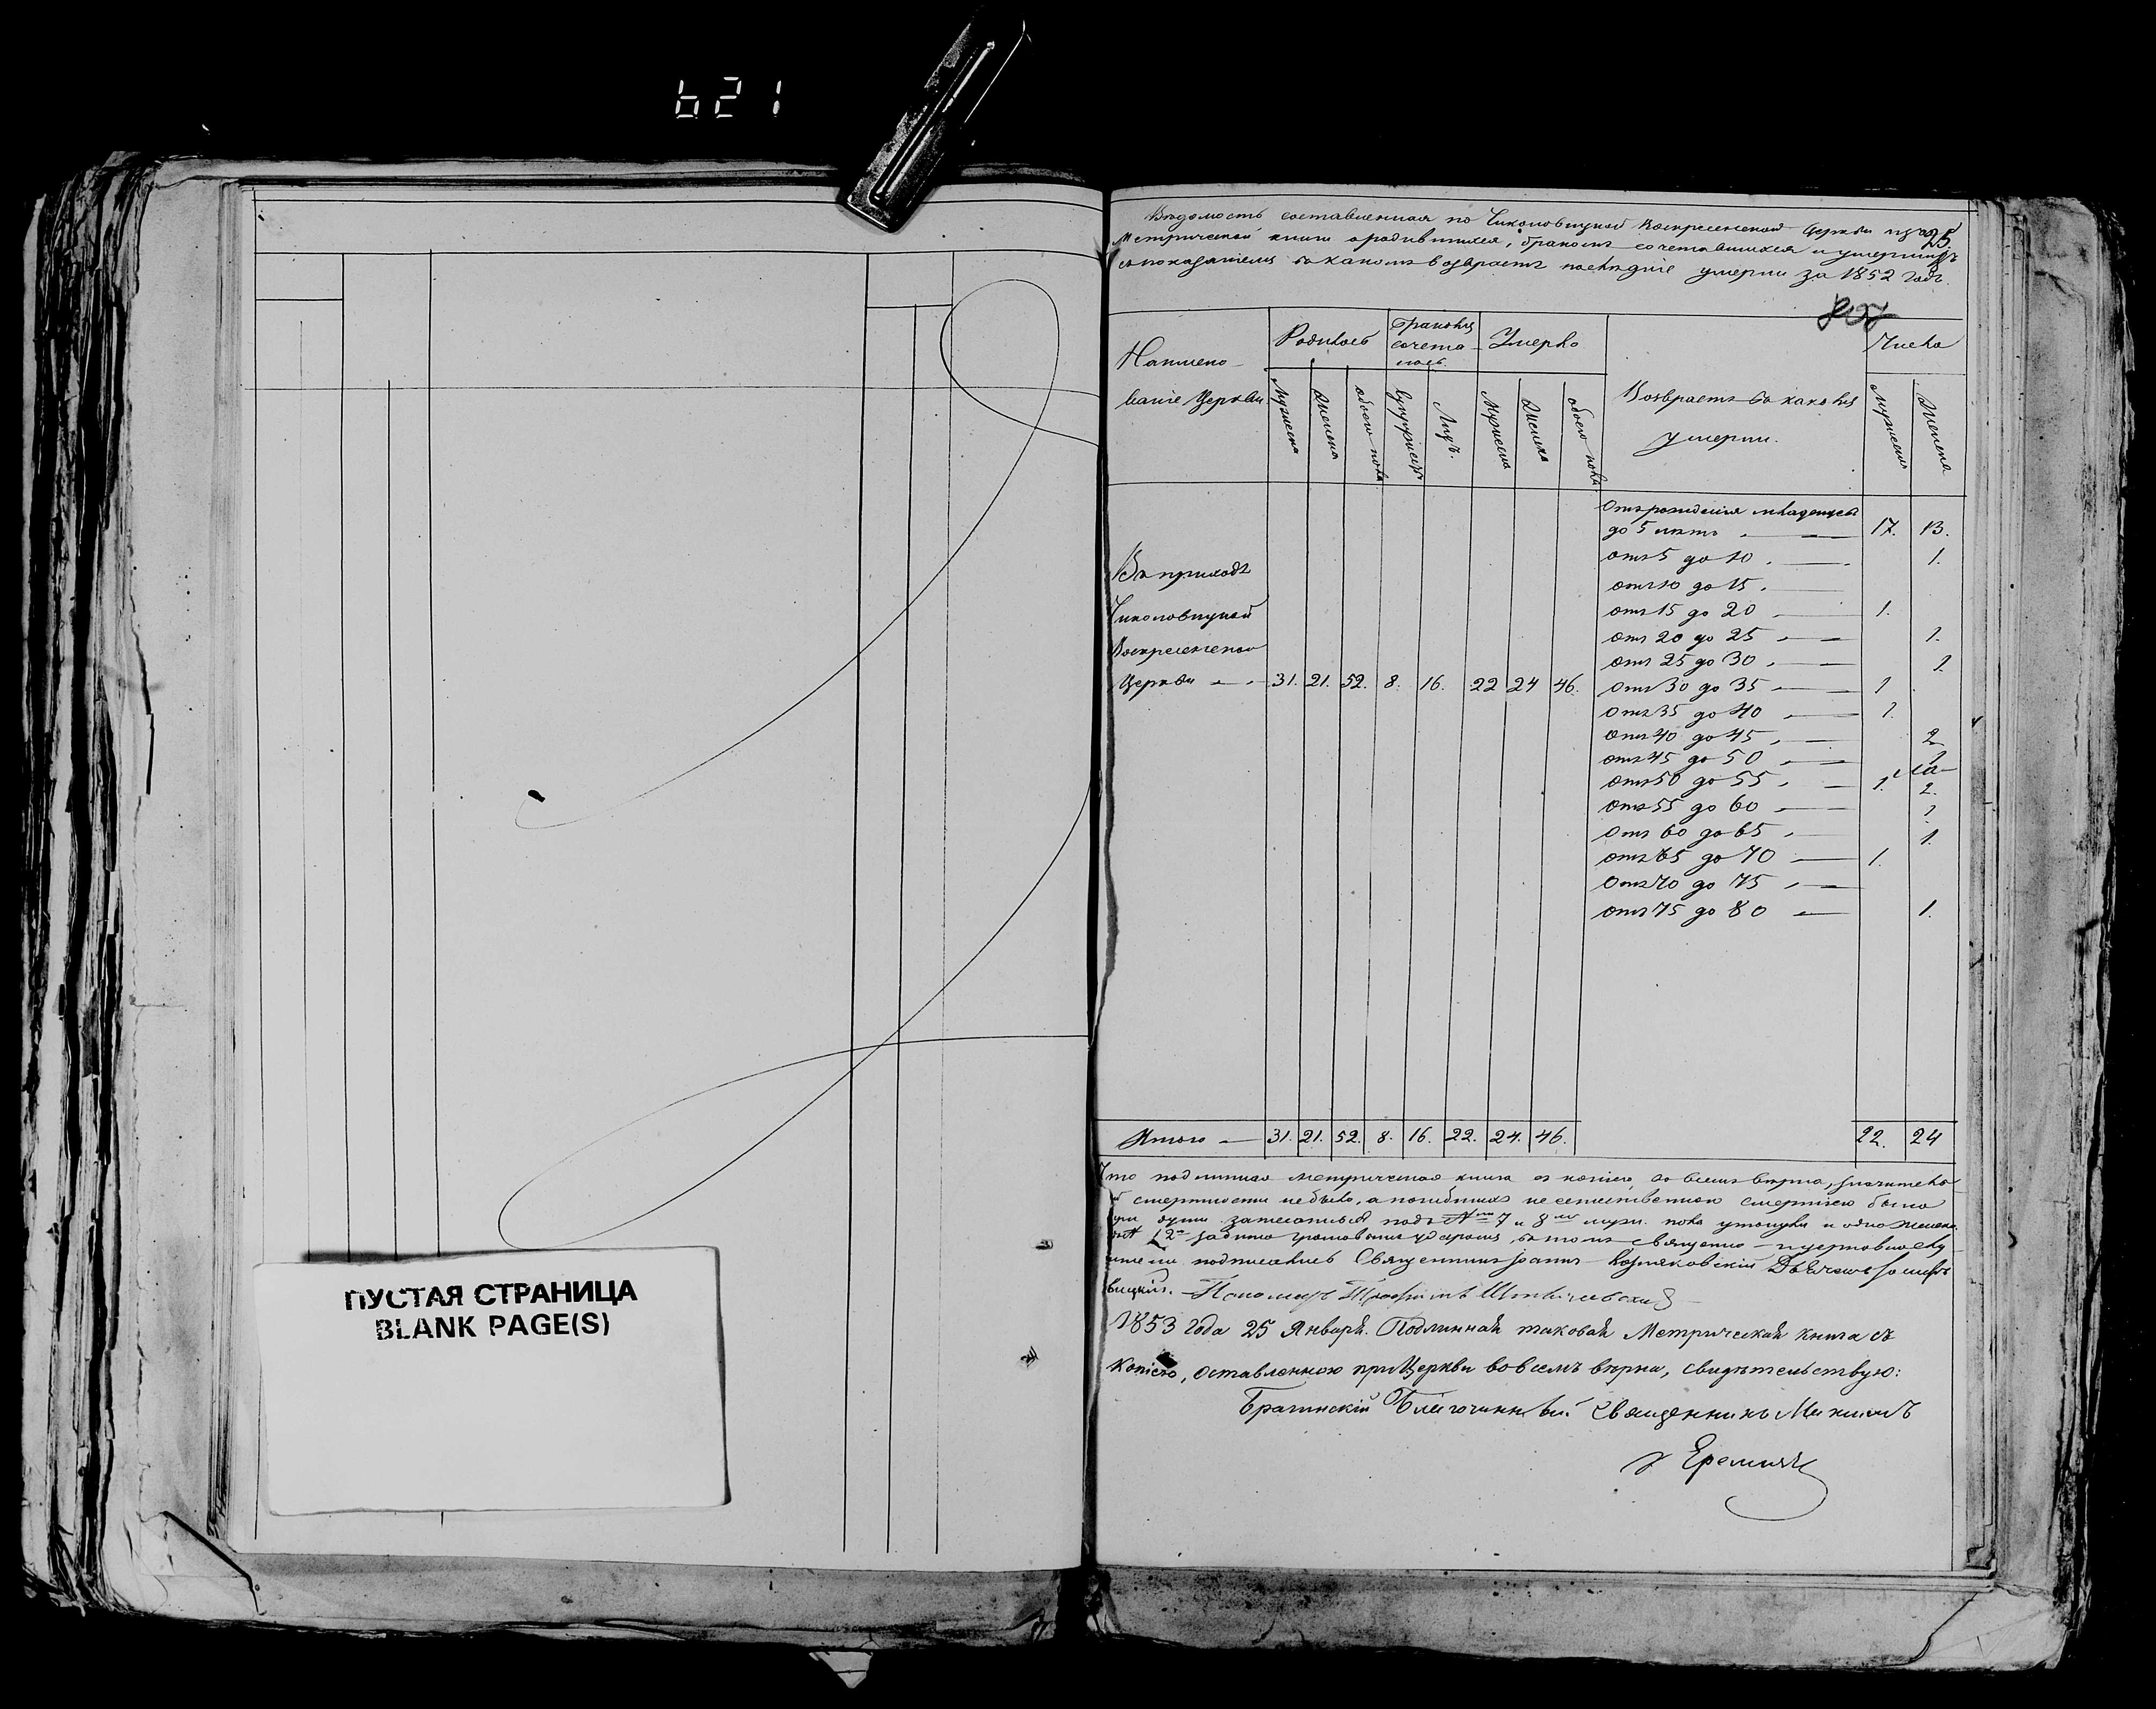 621
Ведомость составленная по Чиколовицкой Воскресенской Церкви из
25
Метрической книги о родившихся, браком сочетавшихся и умерших
съ показаніемъ въ какомъ возврастѣ послѣдніе умерли за 1852 годъ.
Наимено-
ваніе Церкви
Родилось
Браковъ
сочета-
лось.
Умерло
Возврастъ въ каковы
умерли.
Число
Мужеска
Женска
обоего пола
Супружеств
Лицъ.
Мужеска
Женска
обоего пола
Мужеска
Женска
Отъ рожденія младенцевъ
до 5 летъ 17. 13.
отъ 5 до 10 1.
отъ 10 до 15
отъ 15 до 20 1.
отъ 20 до 25 1.
отъ 25 до 30 1.
отъ 30 до 35 1
отъ 35 до 40 1.
отъ 40 до 45 2
отъ 45 до 50
отъ 50 до 55 1. 2.
отъ 55 до 60 1
отъ 60 до 65 1.
отъ 65 до 70 1.
отъ 70 до 75
отъ 75 до 80 1.
Въ приходѣ
Чиколовицкой
Воскресенской
Церкви 31. 21. 52. 8. 16. 22 24 46.
Итого 31. 21. 52. 8. 16. 22. 24. 46. 22. 24
Что подлинная метрическая книга съ копіею во всемъ вѣрна, значитель
смертности не было, а погибшихъ неестественною смертію было
три души записанныя подъ № 7 и 8 муж. пола утонули и одно женска
12 громовымъ ударомъ, въ томъ священно-церковнослу
подписались Священникъ Іоаннъ
вицкій. Пономарь Трофимъ
1853 года 25 Января. Подлинная таковая Метрическая книга съ
копіею, оставленною при Церкви во всемъ вѣрна, свидѣтельствую:
Брагинскій Благочинный Священникъ Максимъ
Еремичъ
ПУСТАЯ СТРАНИЦА
BLANK PAGE(S)